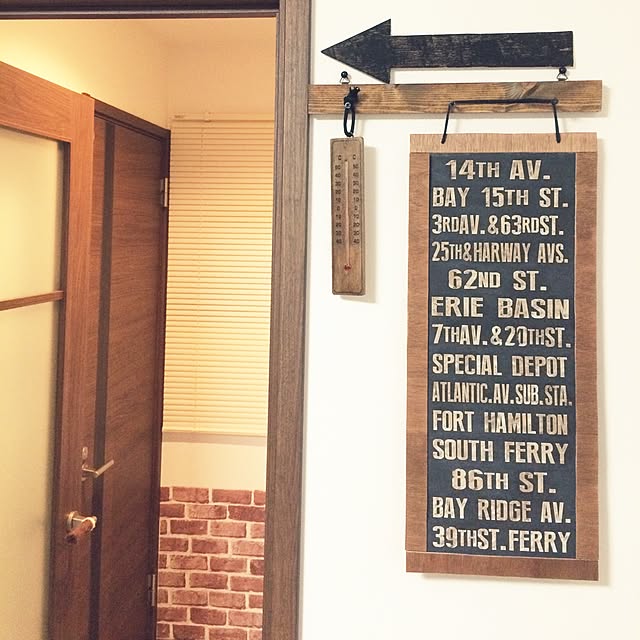 14TH AV.
BAY 15TH ST.
3RDAV.&63RDST.
25TH&HARWAY AVS.
62ND ST.
ERIE BASIN
7THAV.&20THST.
SPECIAL DEPOT
ATLANTIC.AV.SUB.STA.
FORT HAMILTON
SOUTH FERRY
86TH ST.
BAY RIDGE AV.
39THST.FERRY